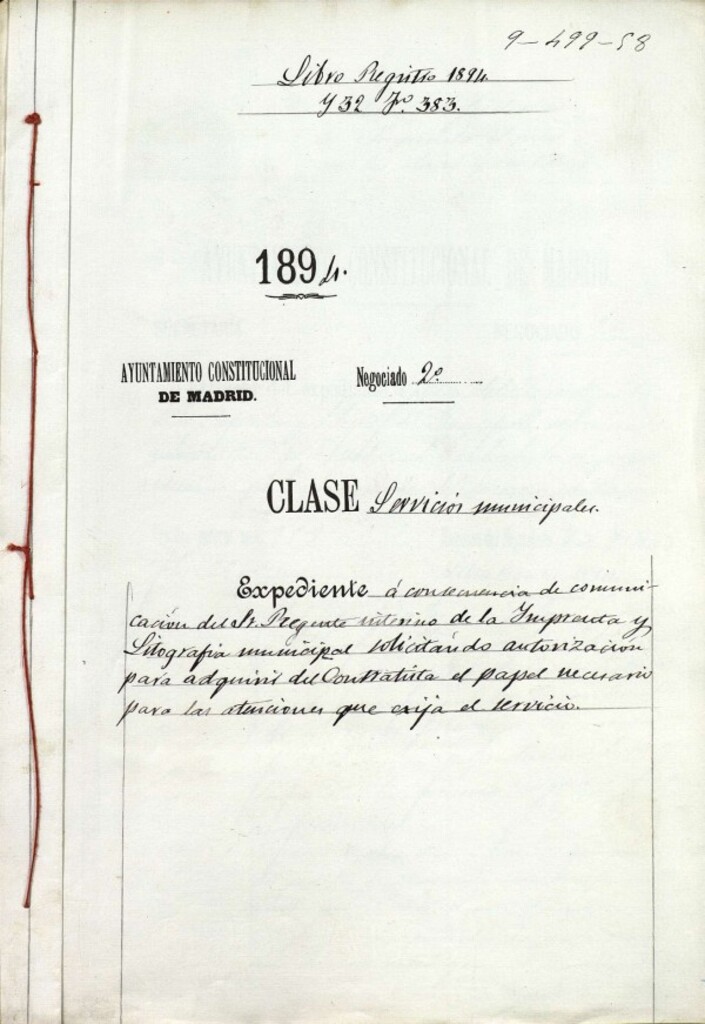 9-499-58
Libro Registro 1894
Y 32 Fº. 383.
1894.
AYUNTAMIENTO CONSTITUCIONAL
DE MADRID.
Negociado 2º
CLASE Servicios municipales.
Expediente á consecuencia de comuni-
cación del Sr. Regente interino de la Imprenta y
Litografia municipal solicitando autorizacion
para adquirir del Contratista el papel necesario
para las atenciones que exija el servicio.